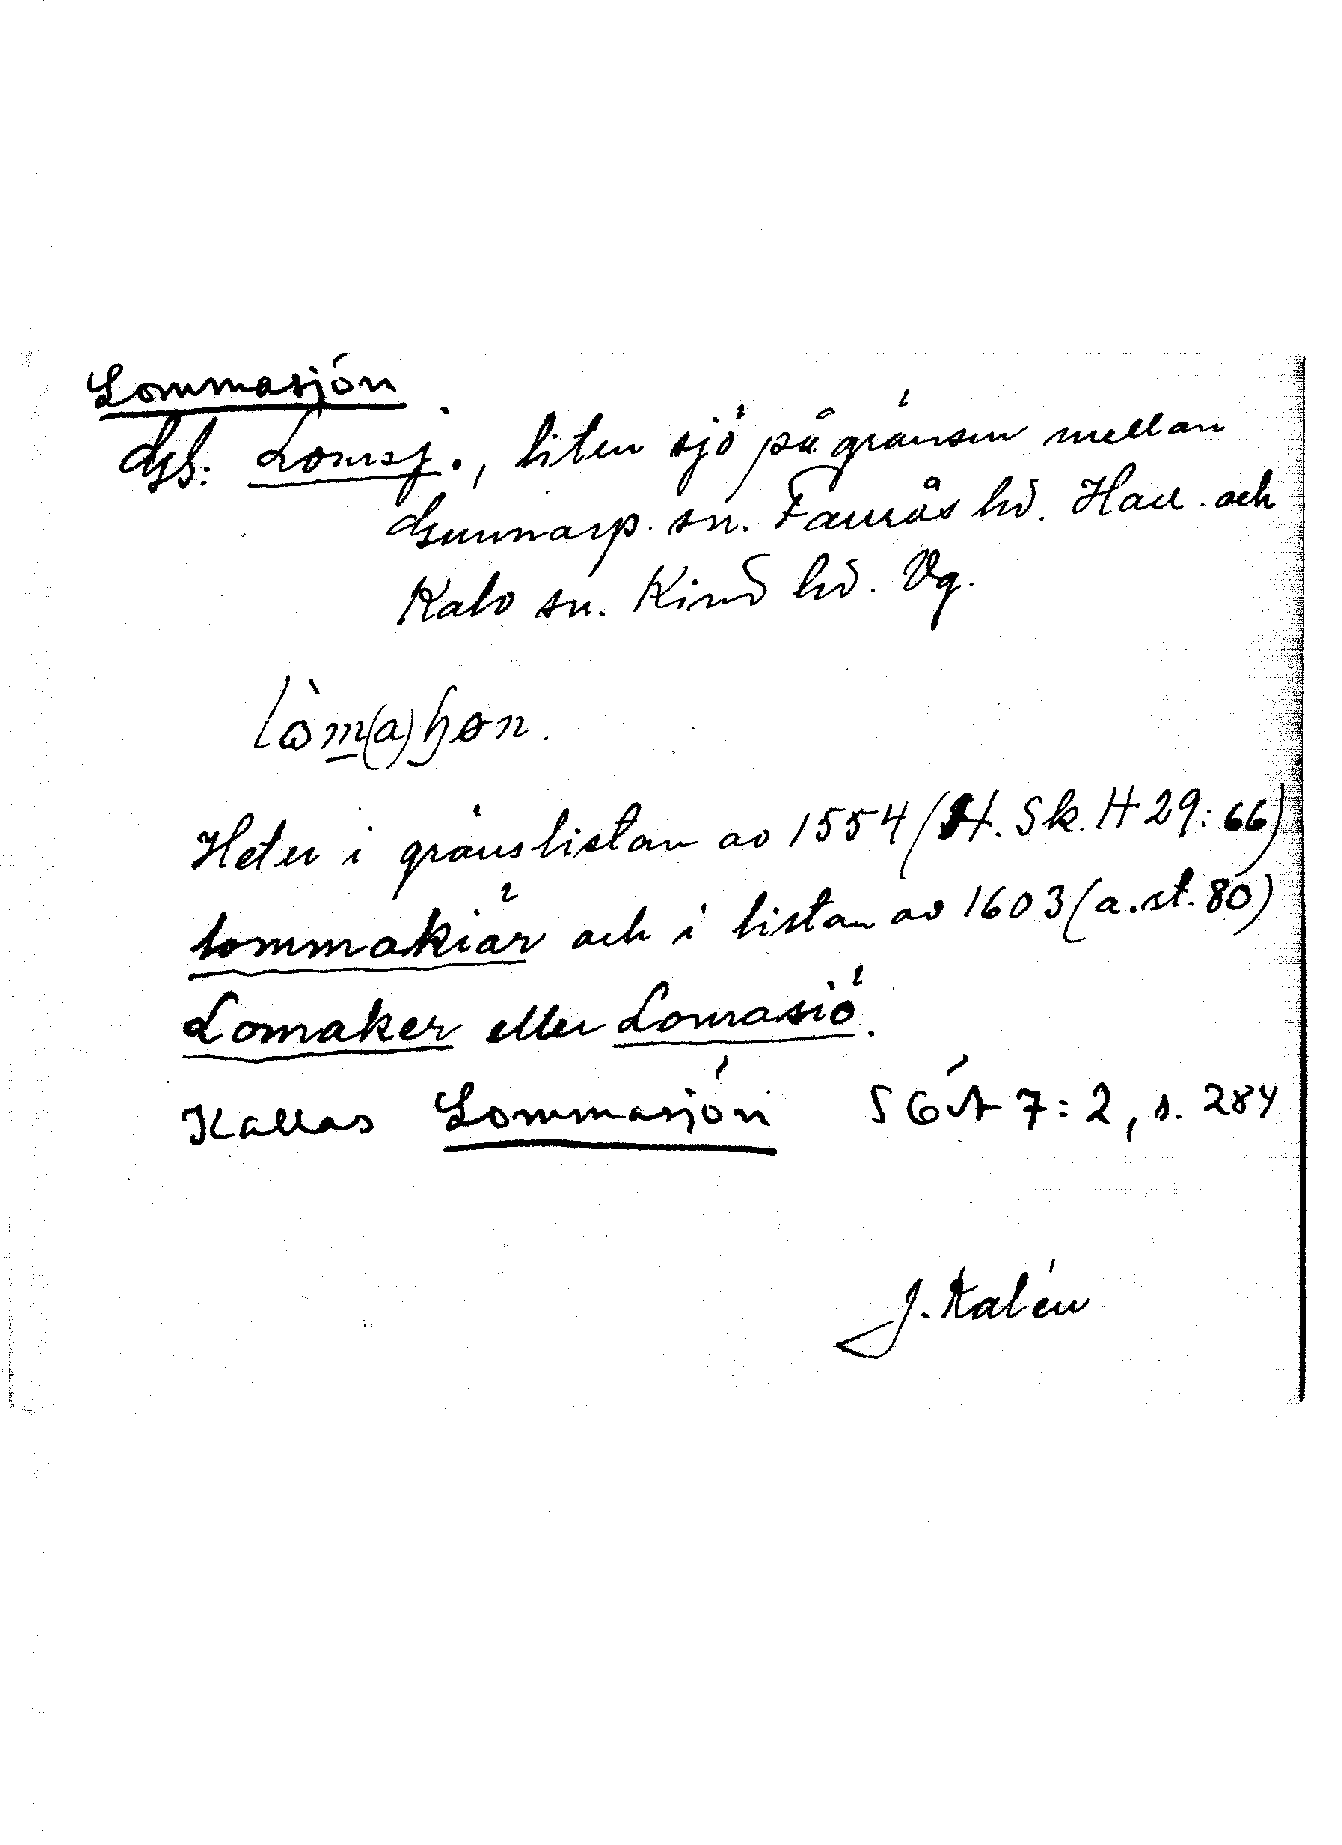 Lommasjön
Gsb: Lomsj., liten sjö på gränsen mellan
Gunnarp sn. Faurås hd. Hall. och
Kalv sn. Kind hd. Vg.
lòm(a)ɧøn.
Heter i gränslistan av 1554 (H. Sk. H 29:66)
lommakiär och i listan av 1603 (a. st. 80)
Lomaker eller Lomasiö.
Kallas Lommasjön SGÖ 7:2, s. 284
J. Kalén